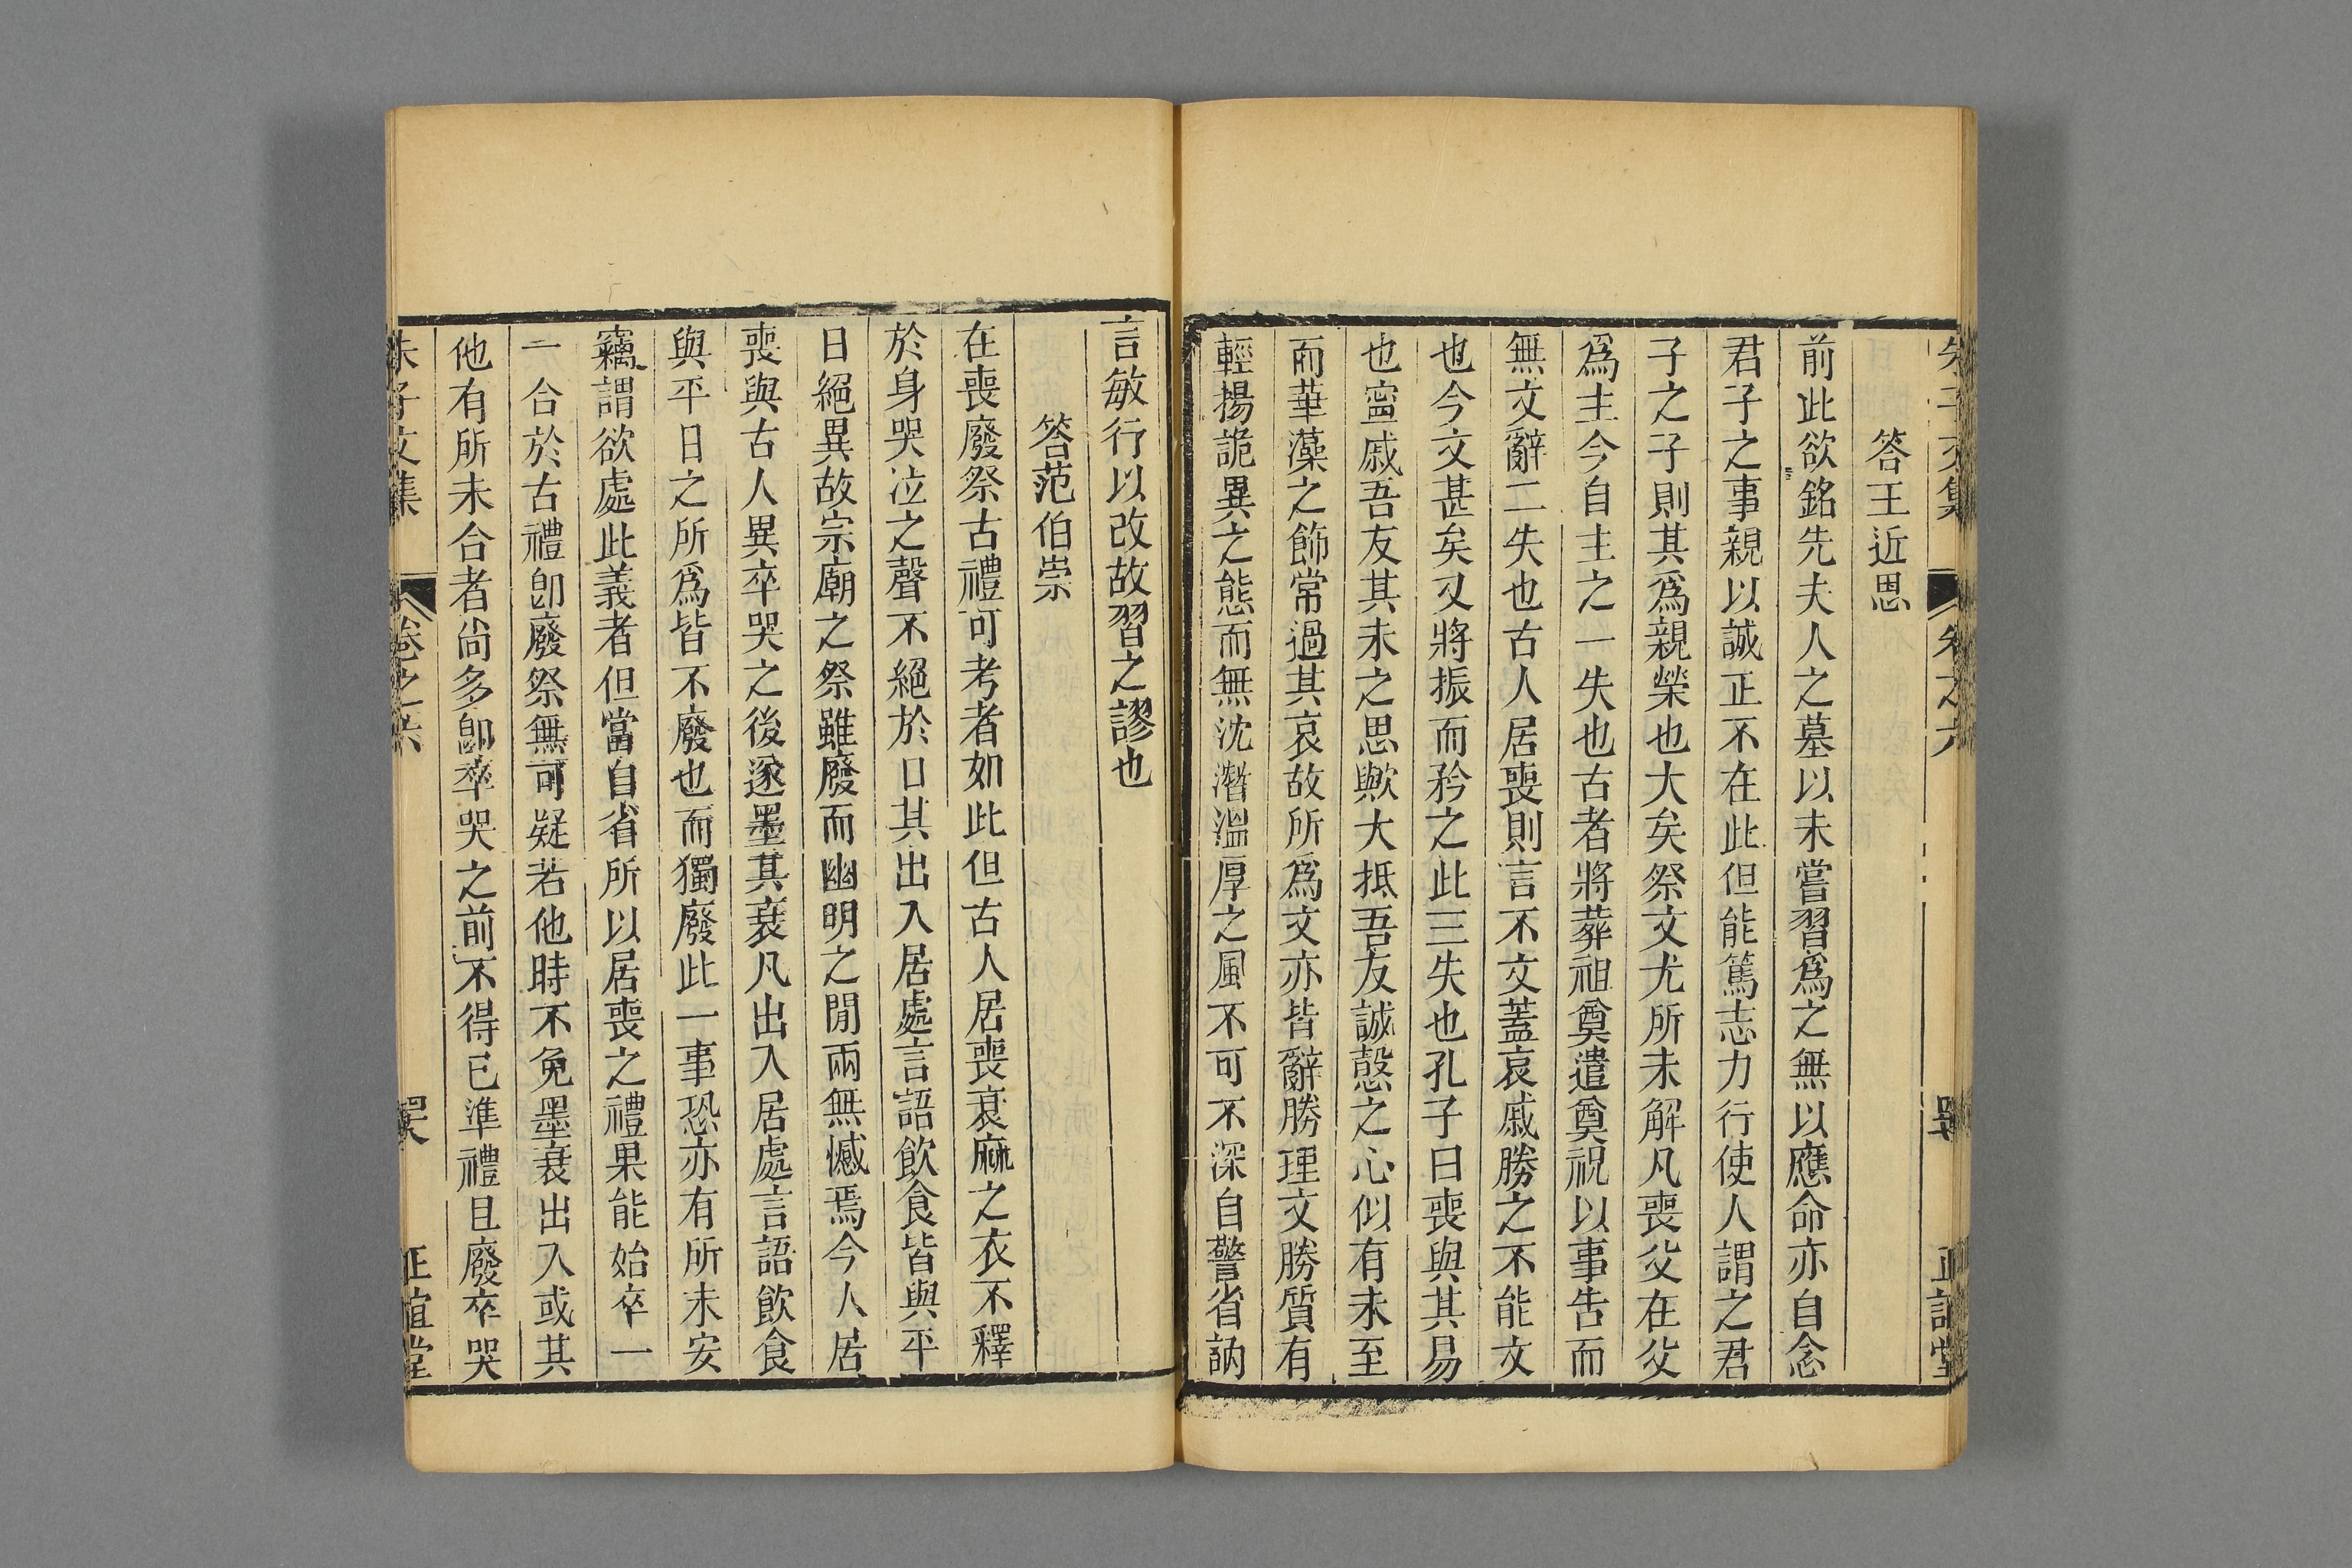 答王近思
前此欲銘先夫人之墓以未嘗習爲之無以應命亦自念
君子之事親以誠正不在此但能篤志力行使人謂之君
子之子則其爲親榮也大矣祭文尤所未解凡喪父在父
爲主今自主之一失也古者將葬祖奠遣奠祝以事告而
無文辭二失也古人居喪則言不文蓋哀戚勝之不能文
也今文甚矣又將振而矜之此三失也孔子曰喪與其易
也寍戚吾友其未之思歟大抵吾友誠慤之心似有未至
而華藻之飾常過其哀故所爲文亦皆辭勝理文勝質有
輕揚詭異之態而無沈潛溫厚之風不可不深自警省訥
言敏行以改故習之謬也
答范伯崇
在喪廢祭古禮可考者如此但古人居喪衰麻之衣不釋
於身哭泣之聲不絕於口其出入居處言語飲食皆與平
日絕異故宗廟之祭雖廢而幽明之閒兩無憾焉今人居
喪與古人異卒哭之後遂墨其衰凡出入居處言語飲食
與平日之所爲皆不廢也而獨廢此一事恐亦有所未安
竊謂欲處此義者但當自省所以居喪之禮果能始卒一
一合於古禮卽廢祭無可疑若他時不免墨衰出入或其
他有所未合者尙多卽卒哭之前不得已準禮且廢卒哭
朱子文集
卷之六
正誼堂